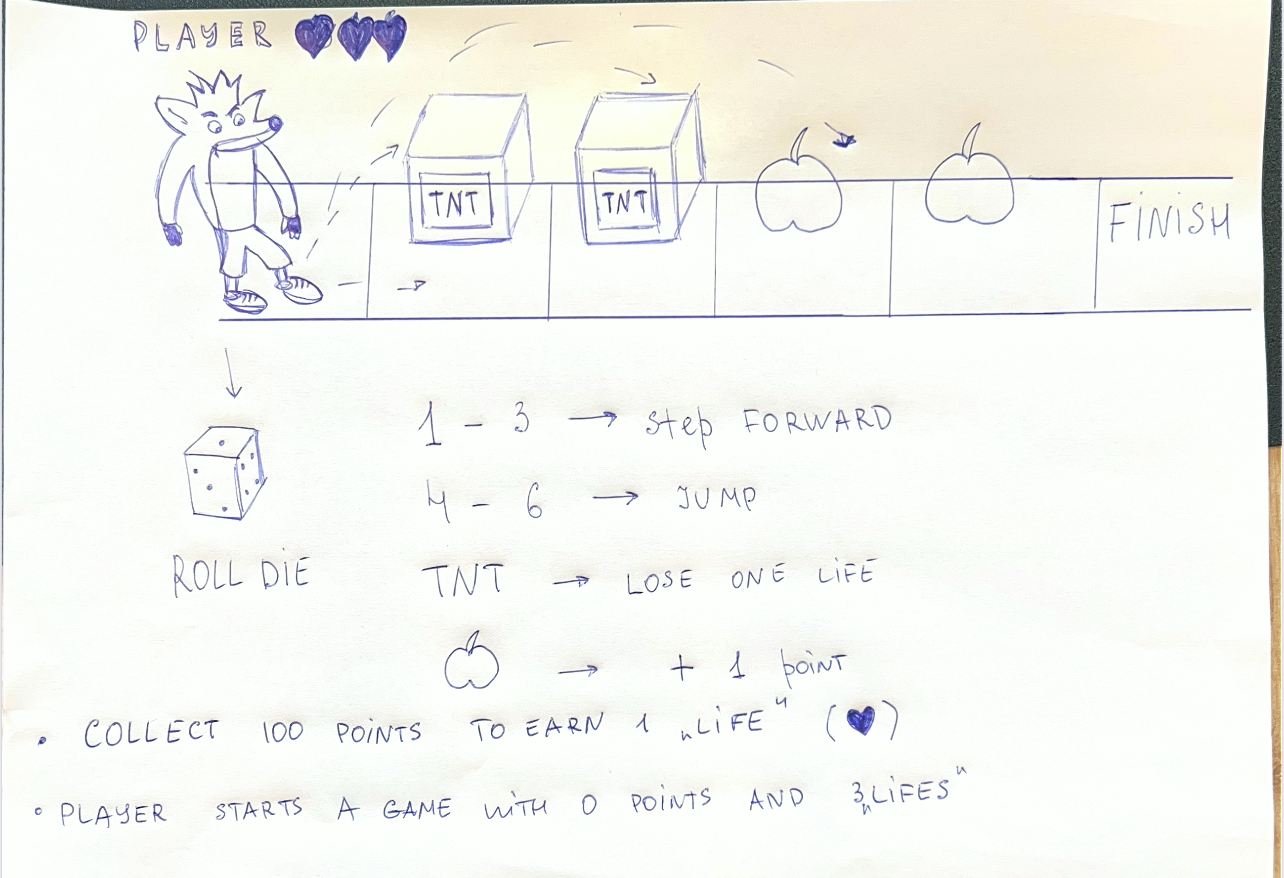 PLAYER
TNT TNT FiNiSH
1 - 3 → Step FORWARD
4 - 6 → JUMP
ROLL DiE
TNT → LOSE ONE LiFE
→ + 1 point
• COLLECT 100 POiNTS TO EARN 1 „LiFE" (♥)
• PLAYER STARTS A GAME WiTH 0 POiNTS AND 3 „LiFES"